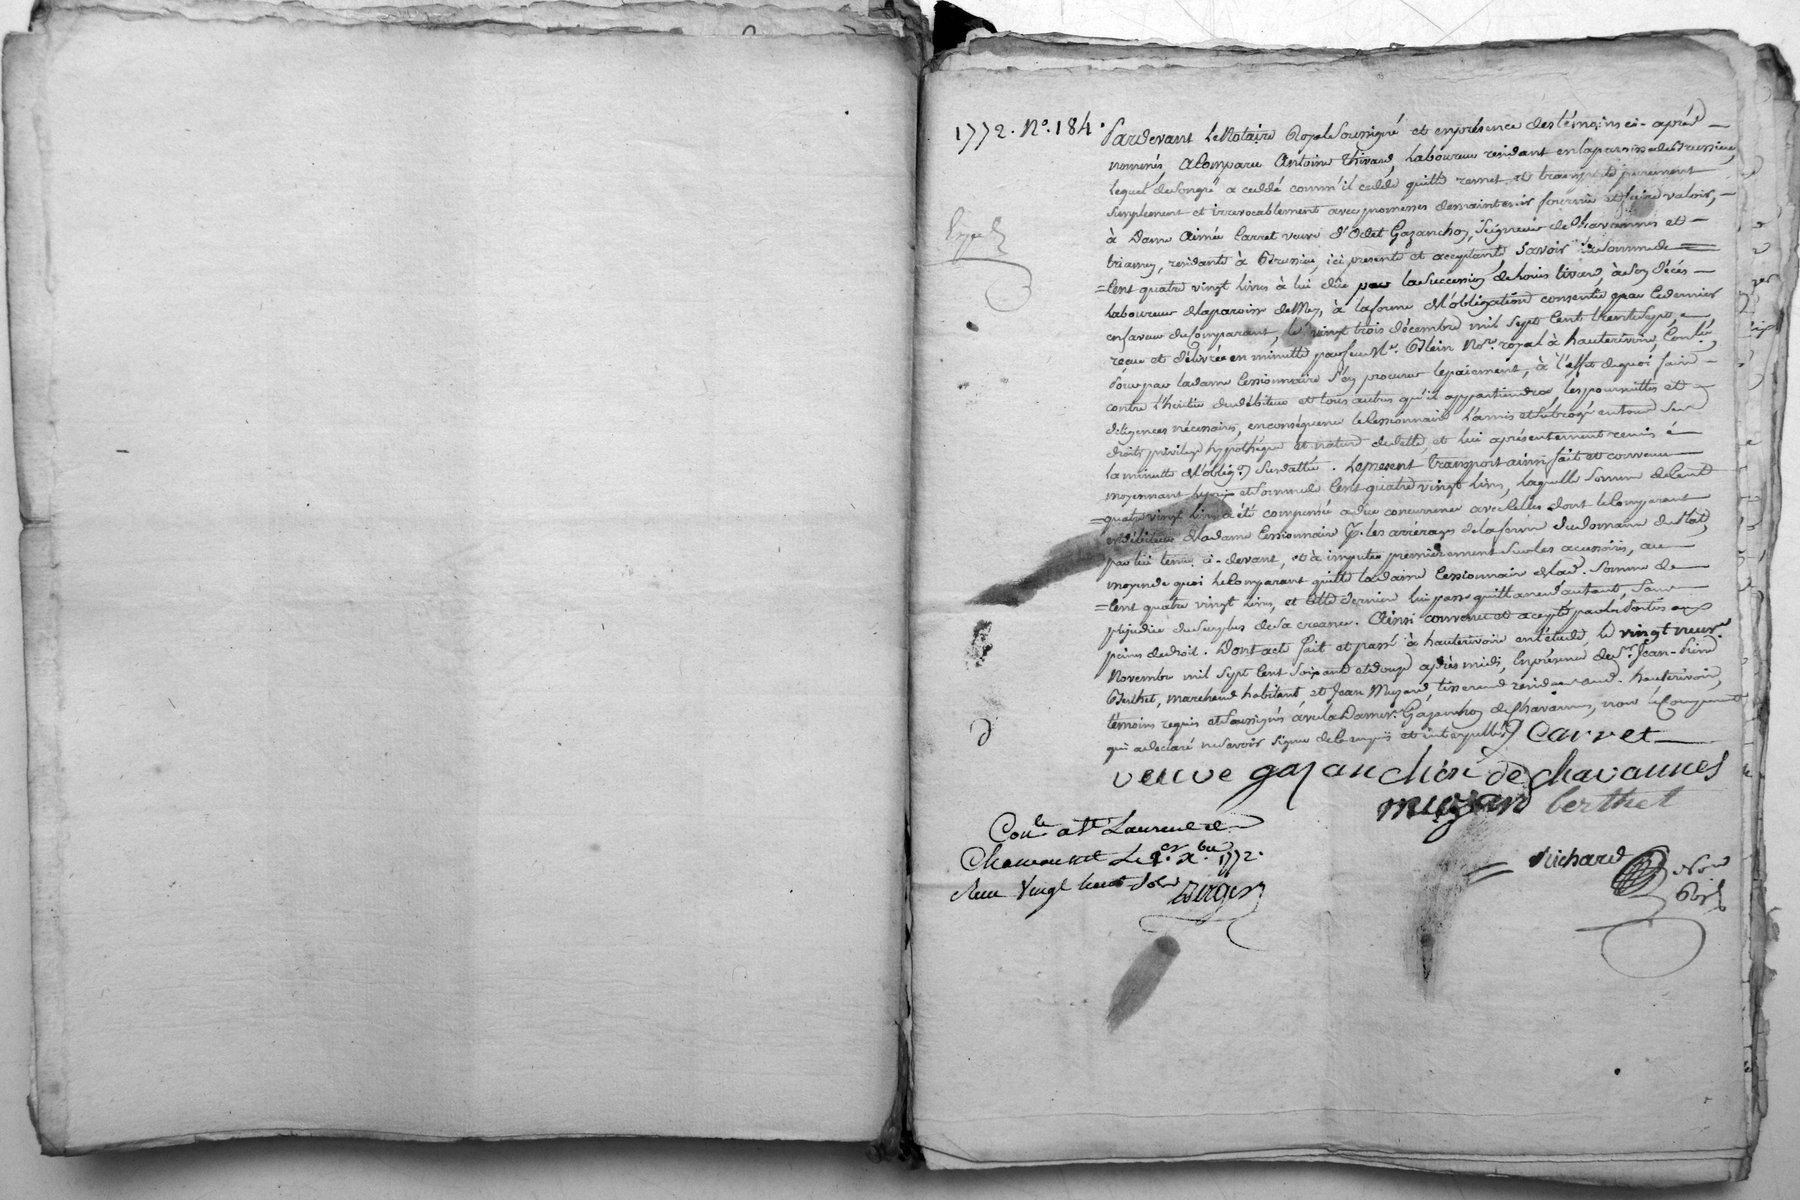 1772. N°. 184.
Pardevant le Notaire Royal Soussigné et en présence des témoins ci-après
nommés, a Comparu Antoine Thivard, laboureur residant en la paroisse de
lequel de son gré a ceddé comm'il cedde quitte remet et transporte purement
simplement et irrevocablement avec promesses de maintenir fournir et faire valoir,
à Dame Aimée Carret veuve d'Odet Gazanchon, Seigneur de Chavannes et
residante à ici presente et acceptante, Savoir la somme de
Cent quatre vingt livres à lui düe par la Succession de Louis à son décès
laboureur de la paroisse de à la forme de l'obligation consentie par ce dernier
en faveur du Comparant, le vingt trois décembre mil Sept Cent trente sept,
reçue et délivrée en minutte par feu Me. Nore. royal à hauterivoire,
Pour par la dame Cessionnaire S'en procurer le paiement, à l'effet de quoi faire
contre l'heritier du débiteur et tous autres qu'il appartiendra les poursuittes et
diligences nécessaires, en conséquence le Cessionnaire l'a mis et Subrogé en tous Ses
droits privilege hypothéque et nature de dette, et lui a présentement remis
la minutte de l'oblig.on Susdattée. Le present transport ainsi fait et convenu
moyennant le prix et Somme de Cent quatre vingt livres, laquelle Somme de Cent
quatre vingt livres a été compensée a düe concurrence avec Celles dont le Comparant
est débiteur de la dame Cessionnaire les arrérages de la ferme du domaine du
par lui tenu ci-devant, et à imputer premièrement Sur les accessoires, au
moyen de quoi le Comparant quitte la dame Cessionnaire de lad. Somme de
Cent quatre vingt livres, et cette derniere lui passe quittance d'autant, Sans
préjudice du Surplus de Sa creance. Ainsi convenu et accepté par les Parties aux
peines de droit. Dont acte fait et passé à hauterivoire en l'étude, le vingt neuf
Novembre mil Sept Cent Soixante et douze après midi, En présence de Sr. Jean-
Berthet, marchand habitant et Jean Muzard, tisserand residant aud. hauterivoire,
témoins requis et Soussignés avec la Dame Ve. Gazanchon de Chavannes, non le Comparant
qui a declaré ne Savoir Signer de ce enquis et interpellé
Carret
veuve gazanchon de chavannes
muzard berthet
Conle. a St Laurent de
Chamousset Le 1er. Xbre 1772.
Reçu Vingt huit Sols
Richard
Nre
Royl